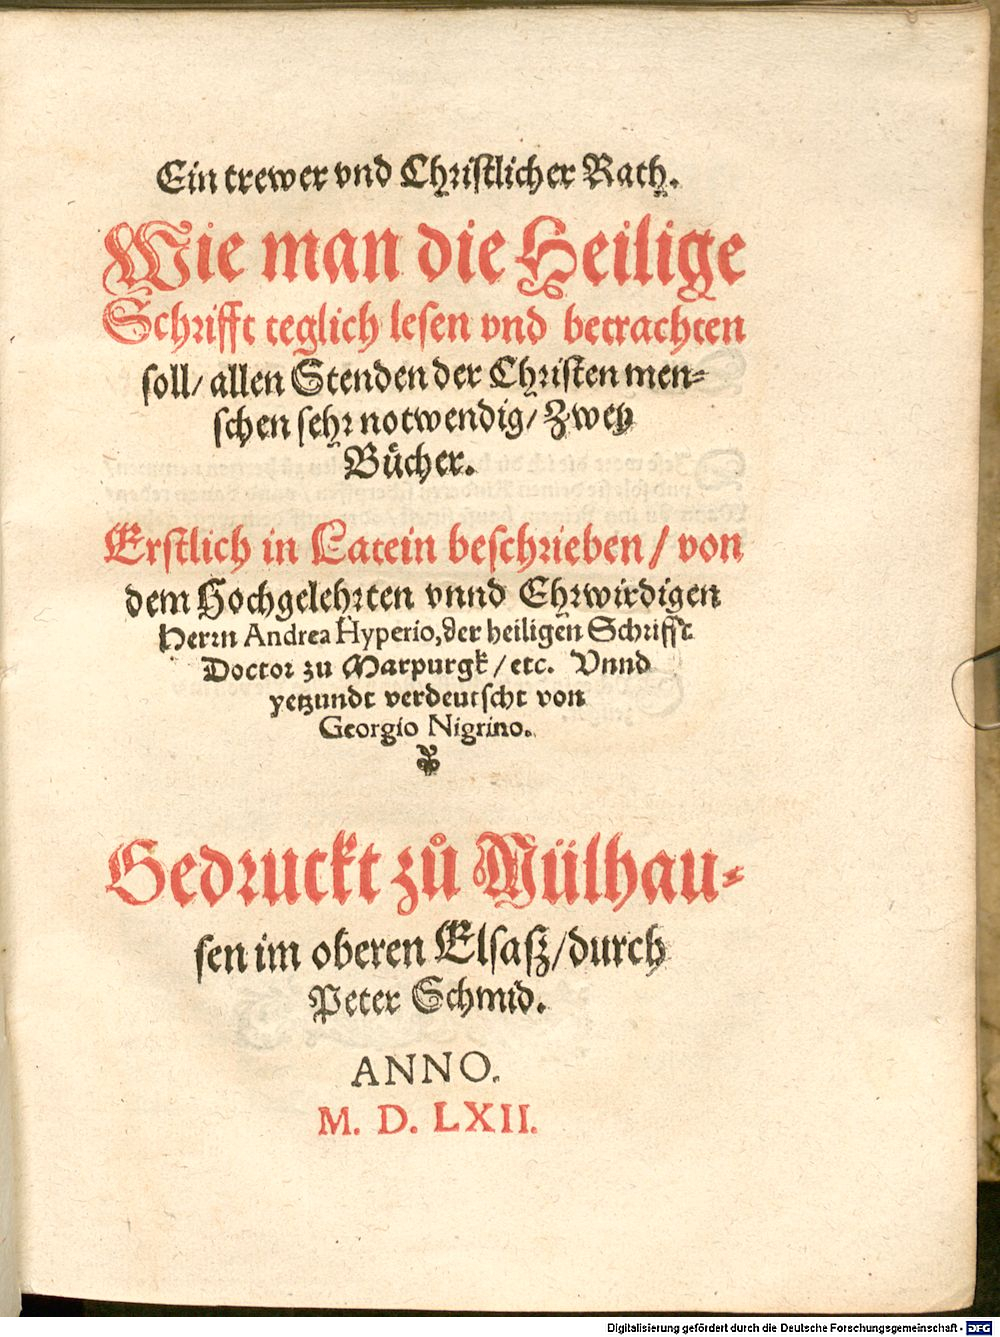 Ein trewer vnd Christlicher Rath.
Wie man die Heilige
Schrifft teglich lesen vnd betrachten
soll/ allen Stenden der Christen men-
schen sehr notwendig/ Zwey
Bücher.
Erstlich in Latein beschrieben/ von
dem Hochgelehrten vnnd Ehrwirdigen
Herrn Andrea Hyperio, der heiligen Schrifft
Doctor zu Marpurgk/ etc. Vnnd
yetzundt verdeutscht von
Georgio Nigrino.
Gedruckt zů Mülhau-
sen im oberen Elsaß/ durch
Peter Schmid.
ANNO.
M. D. LXII.
Digitalisierung gefördert durch die Deutsche Forschungsgemeinschaft - DFG